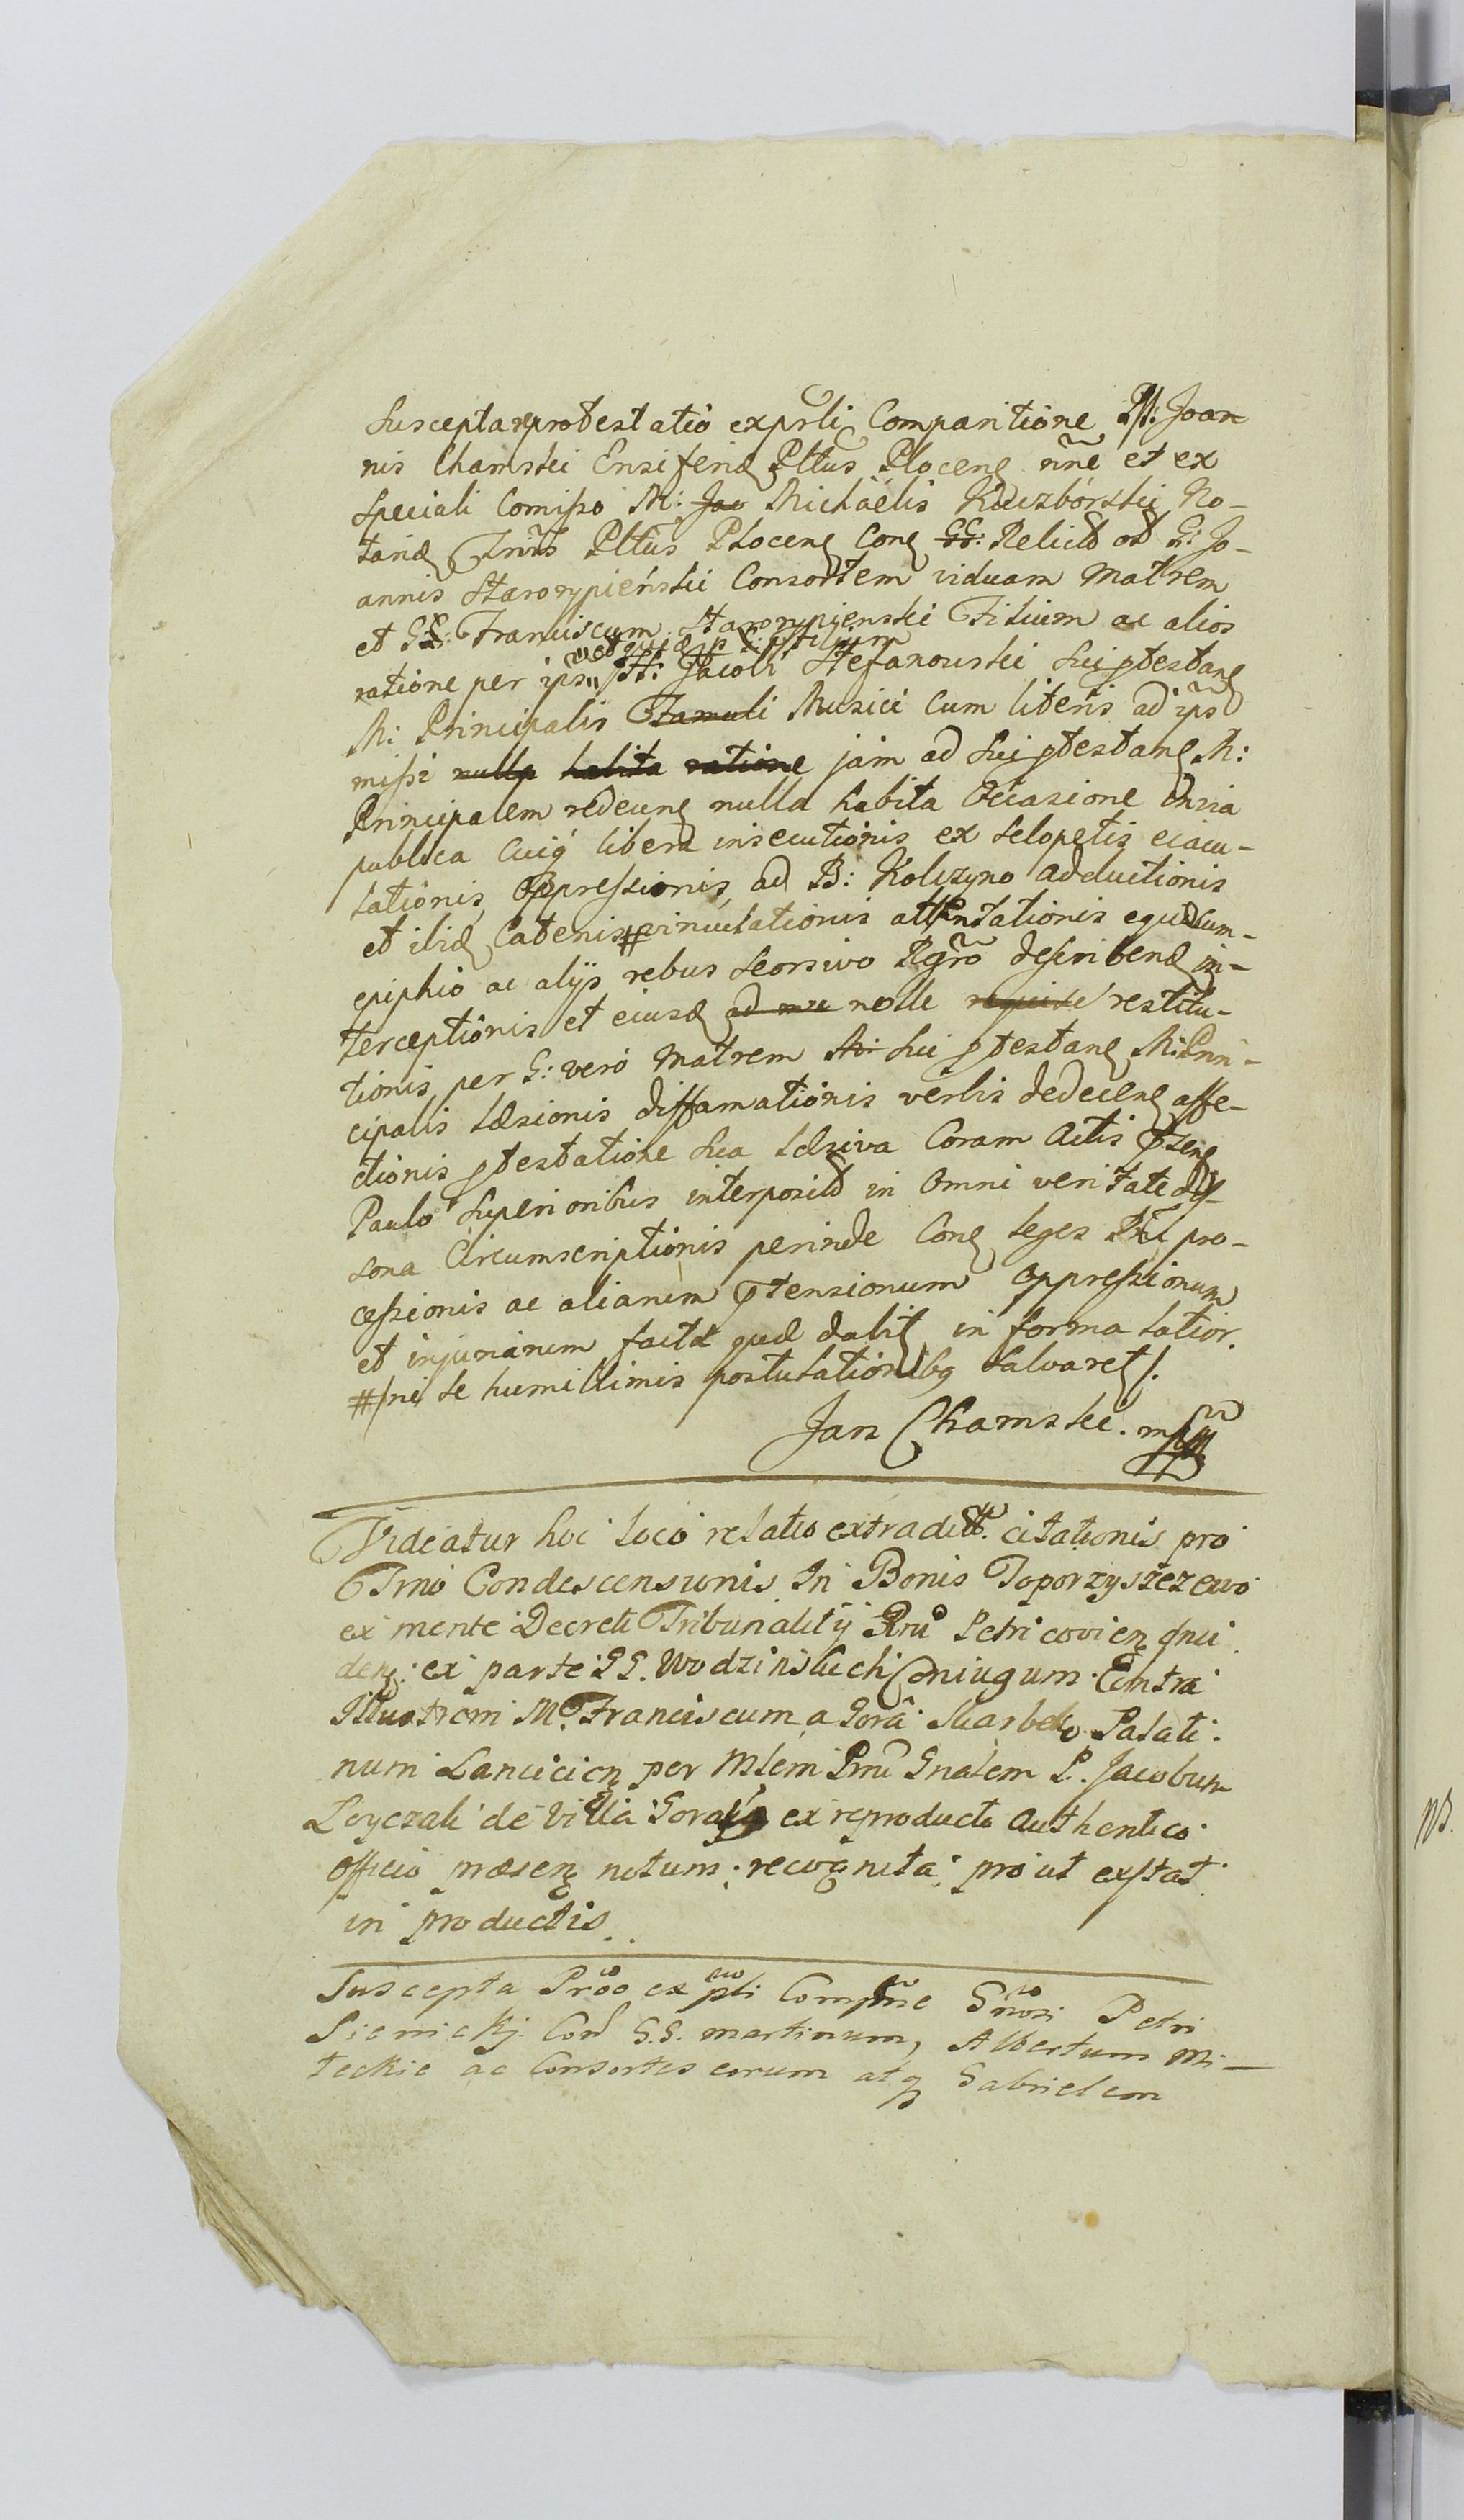 Suscepta reprotestatio exprsli Comparitione M: Joan
nis Chamski Ensiferid Pltus Plocens nne et ex
Speciali Comisso M: Jao Michaelis Kuczborski No-
tarid Trrris Pltus Plocens Cons GG: Relictd G: Jo-
annis Starorypieński Consortem viduam Matrem
et GG: Franciscum Starorypienski Filium ac alios
ratione per Jacobi Stefanowski Sui ptestans
M: Principalis Famuli Musici Cum literis ad ipsd
missi nulla habita ratione jam ad Sui ptestans M:
Principalem redeuns nulla habita Occasione in via
publica Cuiq libera insecutionis ex Sclopetis ecacu-
lationis, Oppressionis, ad B: Kolczyno adductionis
et ibid Catenis # vinculationis attentationis equi cum
epiphio ac alijs rebus Seorsivo Rgro describend in-
terceptionis et eiusd ad nolle restitu-
tionis, per G: vero Matrem Sui ptestans M: Prin-
cipalis Læsionis diffamationis verbis dedecens affe-
ctionis ptestatione Sua Læsiva Coram Actis psens
Paulo Superioribus interpositd in Omni veritate
sona Circumscriptionis perinde Cons leges Rni pro-
cessionis ac aliarum ptensionum Oppressionum
et injuriarum factd qued dabit in forma latior.
#/ni se humillimis postulationibq Salvaret/.
Jan Chamski. mp
Videatur hoc loco relatio extradit. citationis pro
Trno Condescensionis In Bonis Toporzyszczewo
ex mente Decreti Tribunalitij Rni Petricovien
dens: ex parte GG. Wodzinskich Coniugum Contra
Illustrem M. Franciscum a Gora Skarbek Palati-
num Lancicien per Mlem Rni Gnalem P. Jacobum
Loyczak de Villa Gora ex reproducto Authentico
officio præsens notum: recognita; pro ut exstat
in productis.
Suscepta Proo ex pli Compne Gnosi Petri
Sienickj Con G.G. martinum, Albertum Mi-
teckie ac Consortes eorum atq Gabrielem
NB.